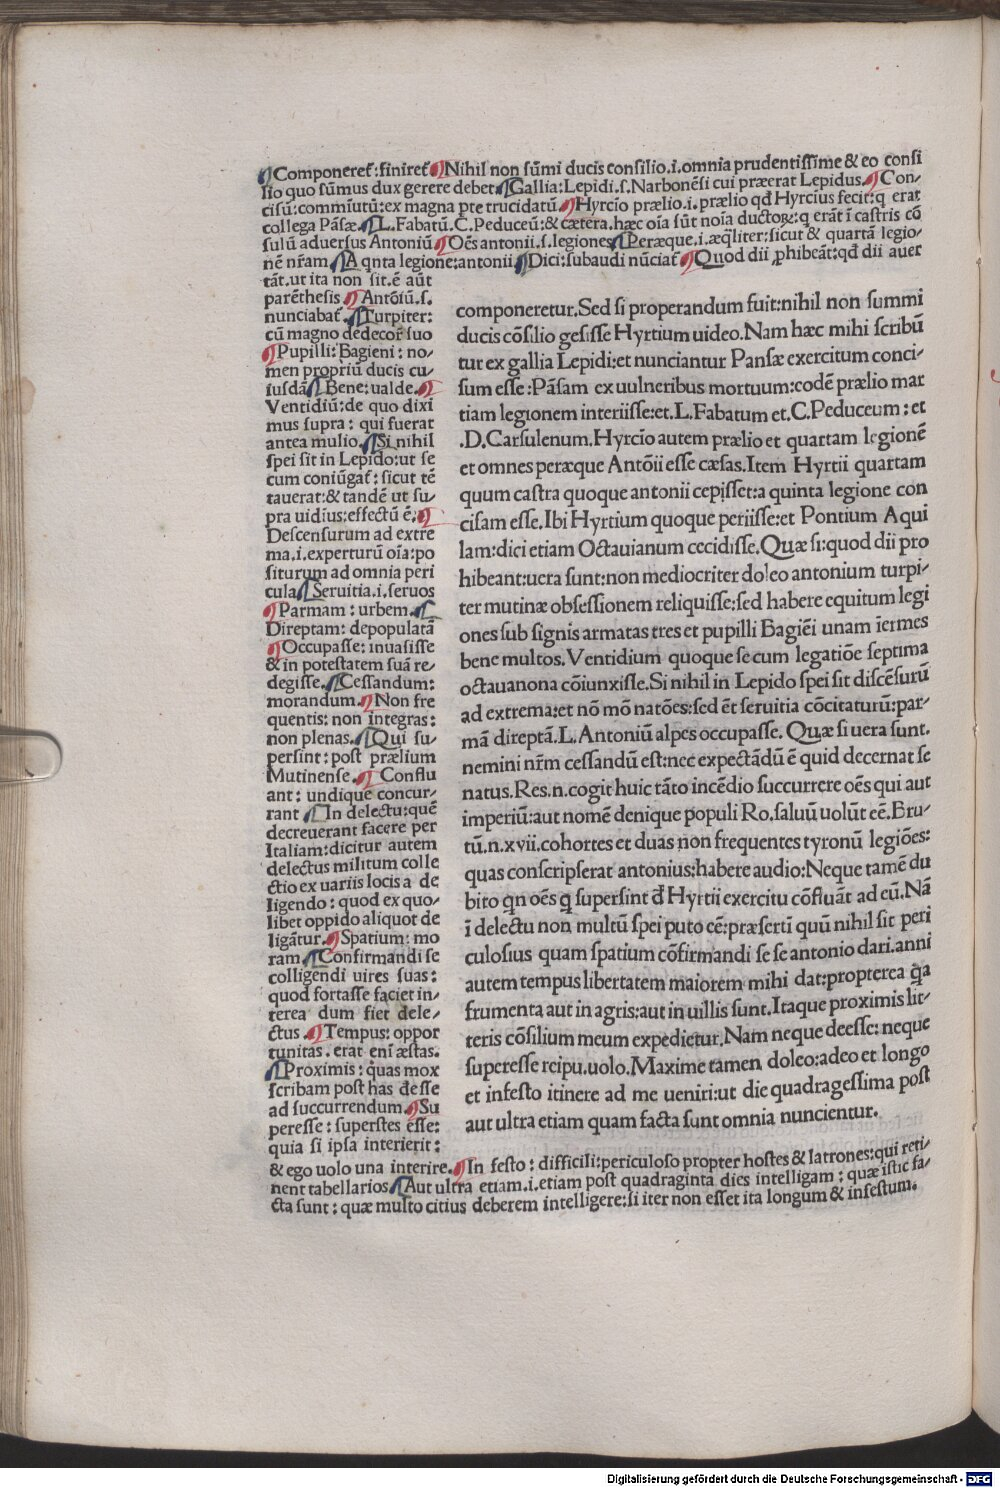 ¶Componeret᷑: finiret᷑ ¶Nihil non sūmi ducis consilio.i.omnia prudentissime & eo consi
lio quo sūmus dux gerere debet ¶Gallia: Lepidi.s.Narbonēsi cui præerat Lepidus. ¶Con-
cisū: cōmiutū: ex magna pte trucidatū ¶Hyrcio prælio.i.prælio qđ Hyrcius fecit: q erat
collega Pāsæ ¶L.Fabatū.C.Peduceū: & cætera.hæc oīa sūt noīa ductoꝝ: q erāt ī castris cō
sulū aduersus Antoniū ¶Oēs antonii.s.legiones ¶Peræque.i.æqliter: sicut & quartā legio-
nē nr̄am ¶A qnta legione: antonii ¶Dici: subaudi nūciat᷑ ¶Quod dii ꝓhibeāt: qđ dii auer
tāt.ut ita non sit.ē aūt
parēthesis ¶Antōiū.s.
nunciabat᷑ ¶Turpiter:
cū magno dedecor̄ suo
¶Pupilli: Bagieni: no-
men propriū ducis cu-
iusdā ¶Bene: ualde. ¶
Ventidiū: de quo dixi
mus supra: qui fuerat
antea mulio. ¶Si nihil
spei sit in Lepido: ut se
cum coniūgat᷑: sicut tē
tauerat: & tandē ut su-
pra uidius: effectū ē. ¶
Descensurum ad extre
ma.i.experturū oīa: po
siturum ad omnia peri
cula ¶Seruitia.i.seruos
¶Parmam: urbem. ¶
Direptam: depopulatā
¶Occupasse: inuasisse
& in potestatem suā re-
degisse. ¶Cessandum:
morandum. ¶Non fre
quentis: non integras:
non plenas. ¶Qui su-
persint: post prælium
Mutinense. ¶Conflu
ant: undique concur-
rant ¶In delectu: quē
decreuerant facere per
Italiam: dicitur autem
delectus militum colle
ctio ex uariis locis a de
ligendo: quod ex quo-
libet oppido aliquot de
ligātur. ¶Spatium: mo
ram ¶Confirmandi se
colligendi uires suas:
quod fortasse faciet in-
terea dum fiet dele-
ctus. ¶Tempus: oppor
tunitas.erat enī æstas.
¶Proximis: quas mox
scribam post has de sse
ad succurrendum. ¶Su
peresse: superstes esse:
quia si ipsa interierit:
componeretur. Sed si properandum fuit: nihil non summi
ducis cōsilio gesisse Hyrtium uideo. Nam hæc mihi scribū
tur ex gallia Lepidi: et nunciantur Pansæ exercitum conci-
sum esse: Pāsam ex uulneribus mortuum: codē prælio mar
tiam legionem interiisse: et. L. Fabatum et. C. Peduceum: et
.D. Carsulenum. Hyrcio autem prælio et quartam legionē
et omnes peræque Antōii esse cæsas. Item Hyrtii quartam
quum castra quoque antonii cepisset: a quinta legione con
cisam esse. Ibi Hyrtium quoque periisse: et Pontium Aqui
lam: dici etiam Octauianum cecidisse. Quæ si: quod dii pro
hibeant: uera sunt: non mediocriter doleo antonium turpi-
ter mutinæ obsessionem reliquisse: sed habere equitum legi
ones sub signis armatas tres et pupilli Bagiēi unam īermes
bene multos. Ventidium quoque secum legatiōe septima
octauanona cōiunxisse. Si nihil in Lepido spei sit discēsurū
ad extrema: et nō mō natōes: sed ēt seruitia cōcitaturū: par-
mā direptā. L. Antoniū alpes occupasse. Quæ si uera sunt.
nemini nr̄m cessandū est: nec expectādū ē quid decernat se
natus. Res. n. cogit huic tāto incēdio succurrere oēs qui aut
imperiū: aut nomē denique populi Ro. saluū uolūt eē. Bru-
tū. n. xvii. cohortes et duas non frequentes tyronū legiōes:
quas conscripserat antonius: habere audio: Neque tamē du
bito qn oēs q supersint đ Hyrtii exercitu cōfluāt ad eū. Nā
ī delectu non multū spei puto eē: præsertī quū nihil sit peri
culosius quam spatium cōfirmandi se se antonio dari. anni
autem tempus libertatem maiorem mihi dat: propterea qa
frumenta aut in agris: aut in uillis sunt. Itaque proximis lit-
teris cōsilium meum expedietur. Nam neque deesse: neque
superesse reipu. uolo. Maxime tamen doleo: adeo et longo
et infesto itinere ad me ueniri: ut die quadragessima post
aut ultra etiam quam facta sunt omnia nuncientur.
& ego uolo una interire. ¶In festo: difficili: periculoso propter hostes & latrones: qui reti-
nent tabellarios ¶Aut ultra etiam.i.etiam post quadraginta dies intelligam: quæ istic fa-
cta sunt: quæ multo citius deberem intelligere: si iter non esset ita longum & infestum.
Digitalisierung gefördert durch die Deutsche Forschungsgemeinschaft - DFG